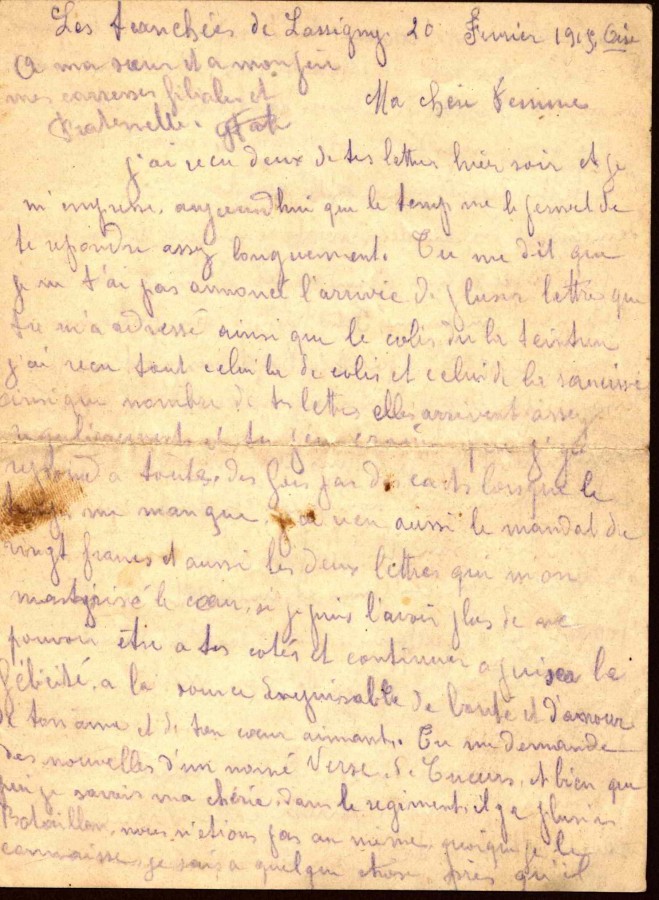 Les tranchées de Lassigny 20 Fevrier 1915, Oise
A ma sœur et a mon
mes carresses filiales et
fraternelle.
Ma chere Femme
j'ai recu deux de tes lettres hier soir et je
m'empresse, aujourd'hui que le temp me le permet de
te repondre assez longuement. Tu me dit que
je ne t'ai pas annoncé l'arrivée de plusieur lettre que
tu m'a adressé ainsi que le colis de la teinture
j'ai recu tout celui la de colis et celui de la saucisse
ainsi que nombre de tes lettres elles arrivent assez
regulierement et tu peu que j'ai
repond a toutes, des fois par des carts lorsque le
temps me manque. j'ai recu aussi le mandat de
vingt francs et aussi les deux lettres qui m'on
martyrisé le cœur, si je puis l'avoir plus de ne
pouvoir être a tes cotés et continuer a puiser la
félicité, a la source inepuisable de bonté et d'amour
de ton ame et de ton cœur aimant. Tu me demande
des nouvelles d'un nomé Verse, de Cucurs, et bien que
je savais ma chérie, dans le regiment, il y a plusieurs
Bataillon, nous n'étions pas au meme, quoique je le
connaisse, je sais a quelque chose près qu'il